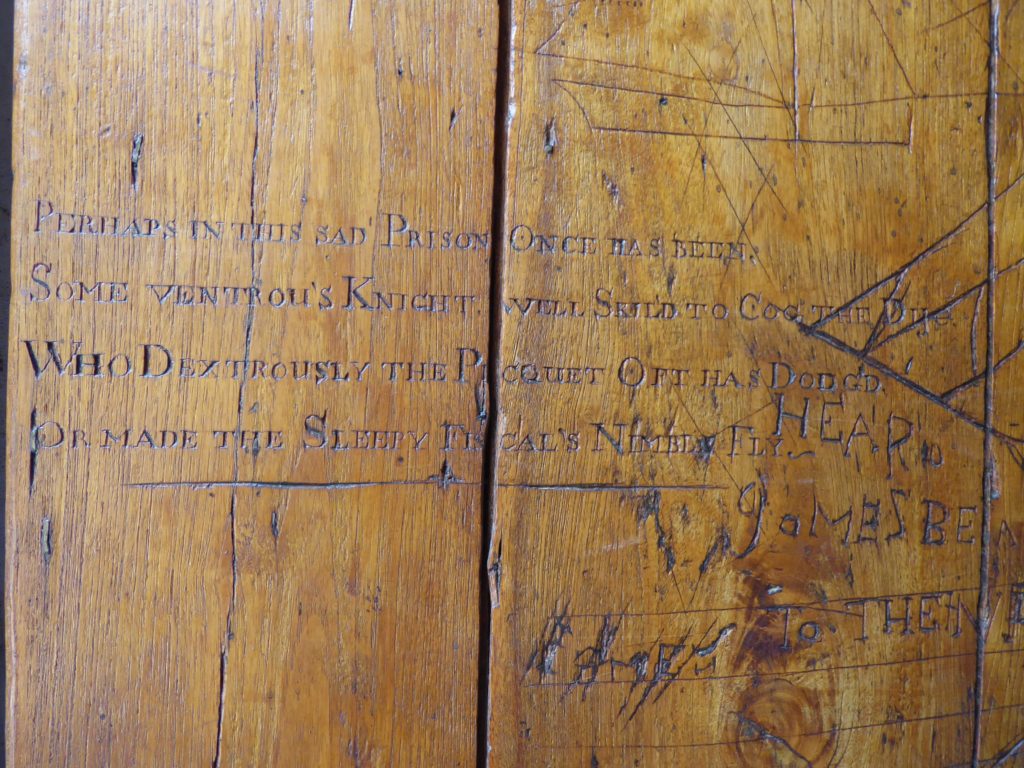 PERHAPS IN THIS SAD PRISON ONCE HAS BEEN.
SOME VENTROU'S KNIGHT. WELL SKIL'D TO COG THE DIE.
WHO DEXTROUSLY THE PACQUET OFT HAS DODG'D
OR MADE THE SLEEPY FISCAL'S NIMBLY FLY.
HEAR'D
JAMES BEA
TO THEN
JAMES